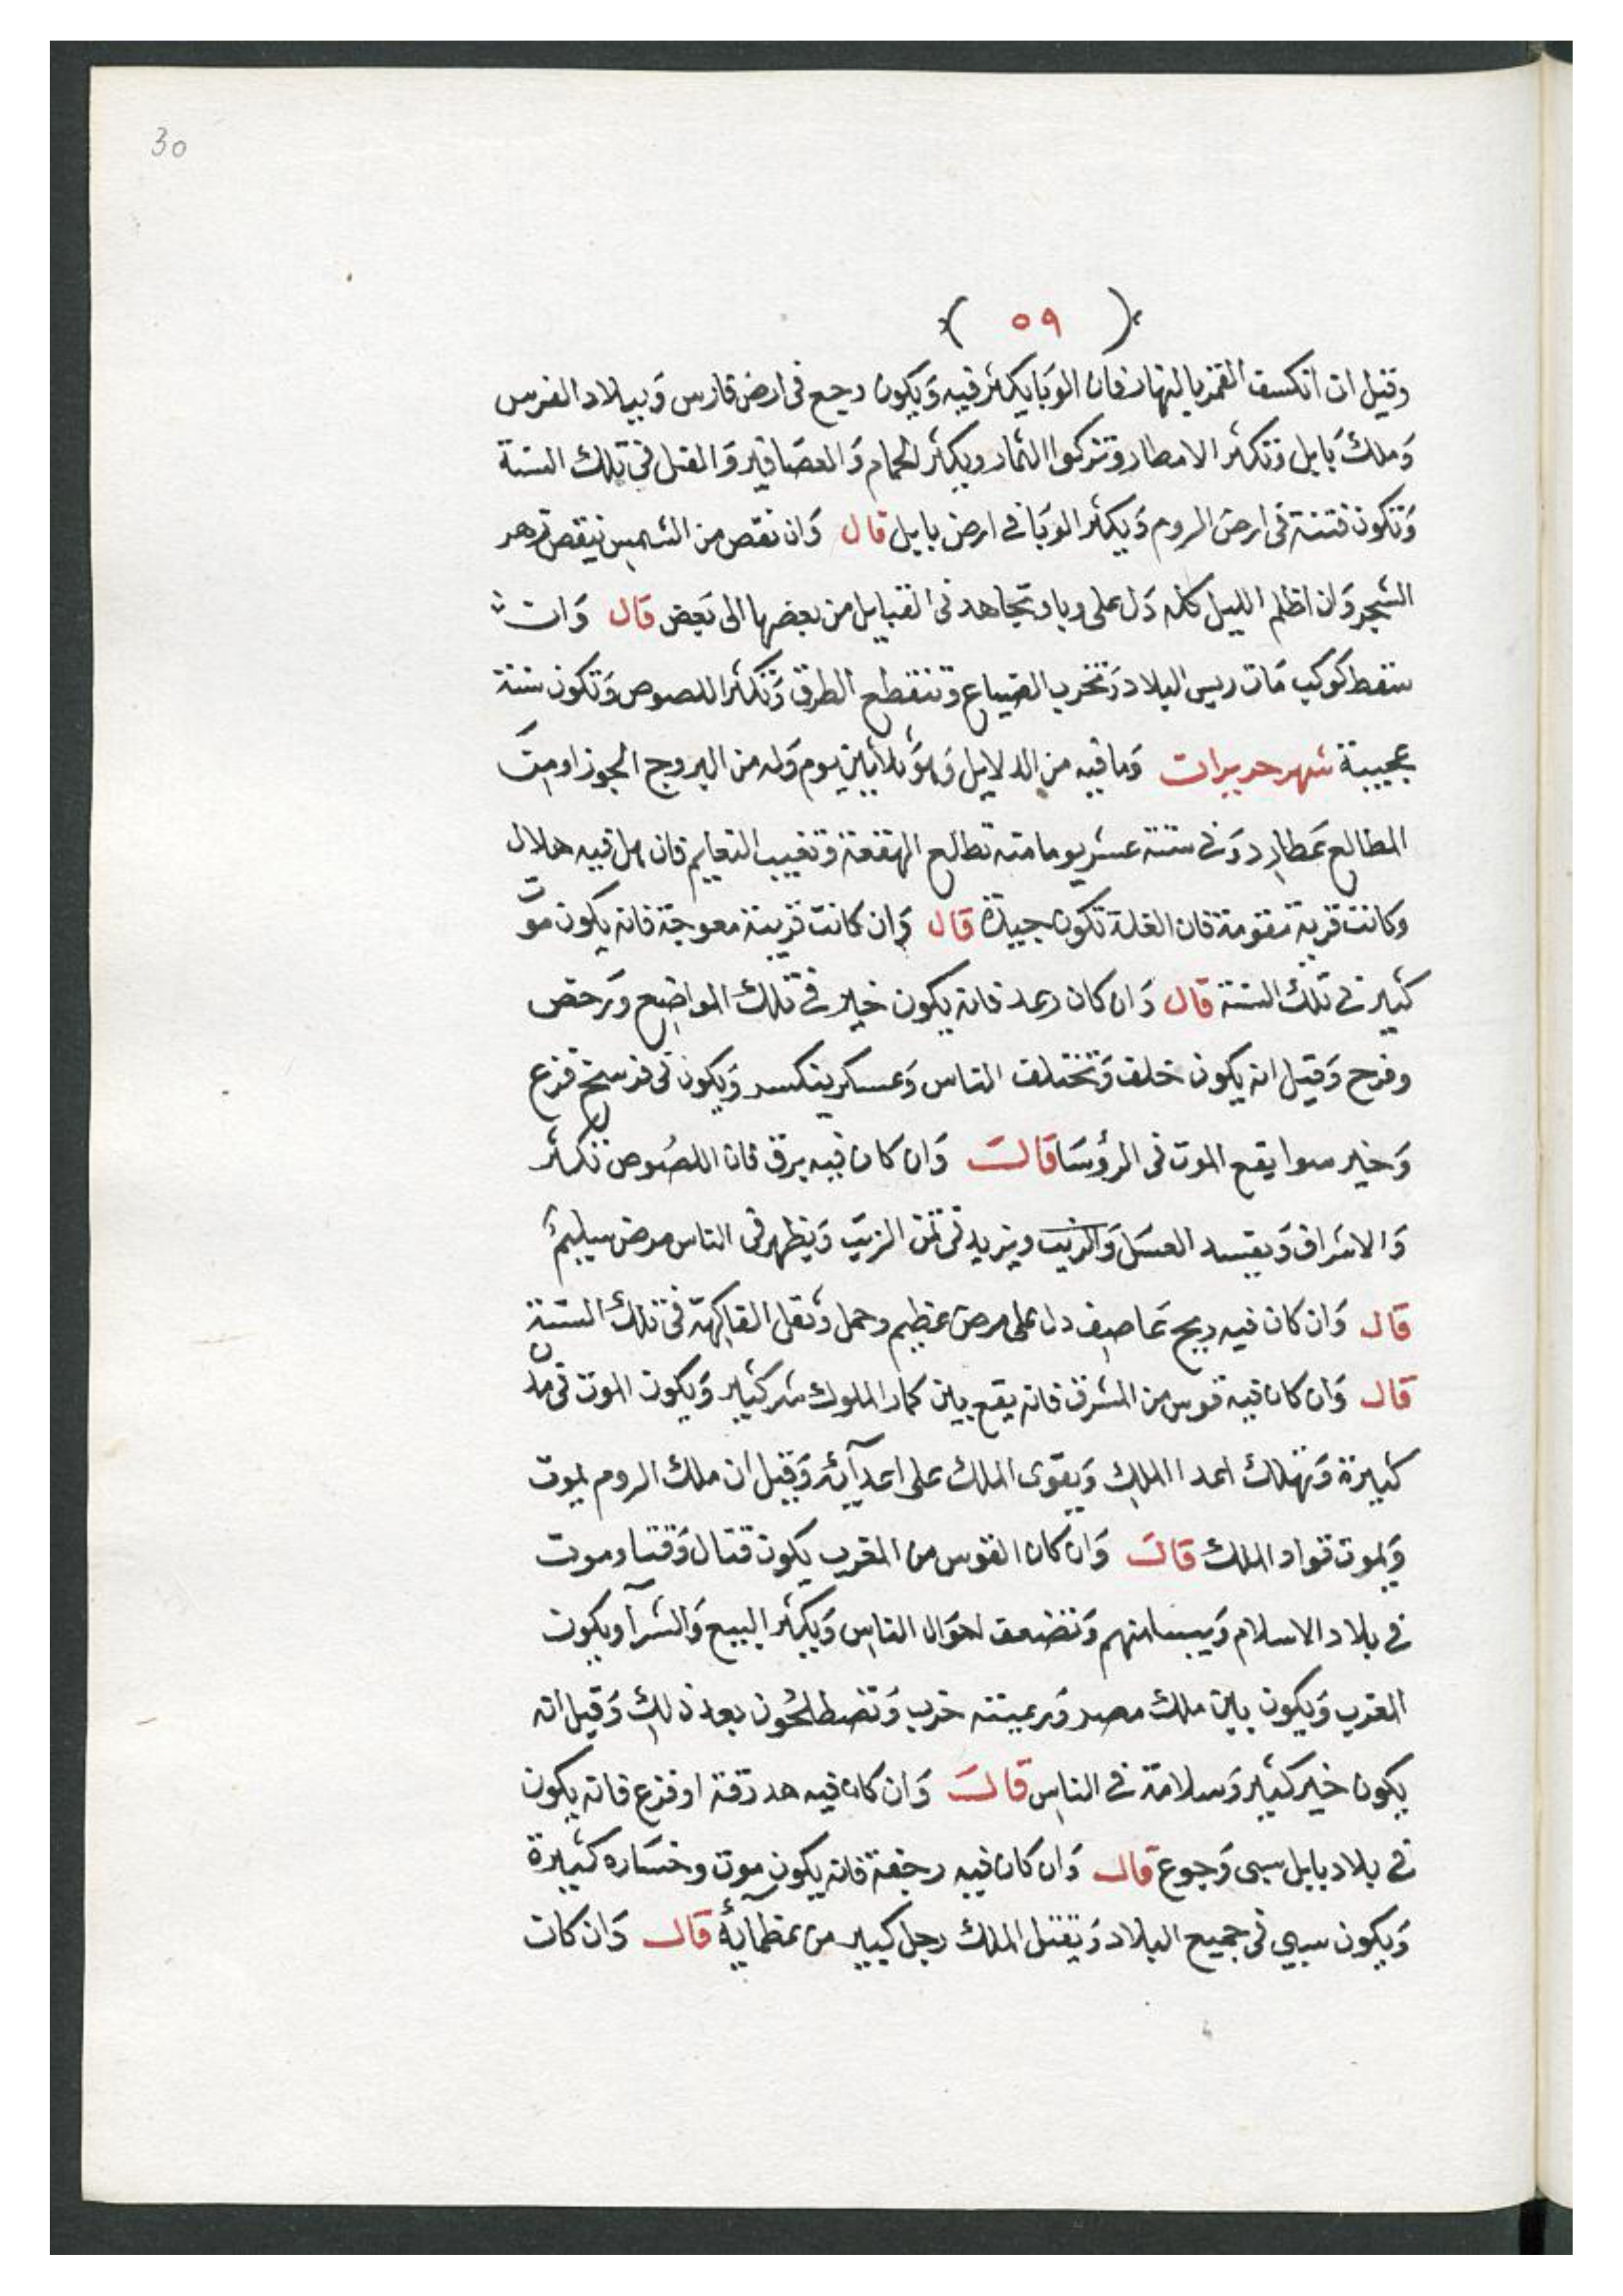 30
( ٥٩ )
وقيل ان انكسف القمر بالنهار فان الوبا يكثر فيه وَيكون رجع فى ارض فارس وَببلاد الفرس
وَملك بَابل وَتكثر الامطار وتزكوا الثمار ويكثر الحمام وَالعصَافير وَالمقل فى تلك السنة
وَتكون فتنة فى ارض الروم وَيكثر الوبَا فى ارض بابل قال وَان نقص من الشمس نيقص زهر
الشجر وَان اظلم الليل كله دَل على وبا وتجاهد فى القبايل من بعضها الى بَعض قال وَان
سقط كوكب مَات ريس البلاد وَتخرب الضياع وتنقطع الطرق وَتكثر اللصوص وَتكون سنة
عجيبة شهر حزيران وَما فيه من الدلايل وَهوَ ثلاثين يوم وَله من البروج الجوزا ومِنَ
المطالع عَطارِد وَفى ستة عشر يوما منه تطالع الهقعة وتغيب النعايم فان هل فيه هلال
وكانت قرنه مقومة فان الغلة تكون جيدة قال وَان كانت قرينة معوجة فانه يكون موت
كثير فى تلك السنة قال وَان كان رعد فانه يكون خير فى تلك المواضِع وَرخص
وفرح وَقيل انه يكون خلف وَتختلف الناس وَعسكر ينكسر وَيكون فى فرسخ فزع
وَخير سوا يقع الموت فى الرؤسَا قَالَ وَان كان فيه برق فان اللصُوص تكثر
وَالاشراف وَيفسد العسَل وَالزيت ويزيد فى ثمن الزيَت وَيظهر فى الناس مرض سيليم
قال وَان كان فيه ريح عَاصِف دل على مرض عظيم وحمل وَثقل الفاكهة فى تلك السَنة
قال وَان كان فيه قوس من المشرق فانه يقع بين كبار الملوك شر كثير وَيكون الموت فى مدن
كثيرة وَتهلك اعدا الملك وَيقوى الملك على اعدآئه وَقيل ان ملك الروم يموت
وَيموت قواد الملك قالَ وَان كان القوس من المغرب يكون قتال وَقتنا وموت
فى بلاد الاسلام وَيبسالتهم وَتضعف احوَال الناس وَيكثر البيع وَالشرآ ويكون
الغرب وَيكون بين ملك مصر وَرعيته حرب وَتصطلحُون بعد ذلك وَقيل انه
يكون خير كثير وَسلامة فى الناس قالَ وَان كان فيه هدر رقة او فزع فانه يكون
فى بلاد بابل سبى وَجوع قال وَان كان فيه رجفة فانه يكون موت وخسَاره كثيرة
وَيكون سبى فى جميع البلاد وَيقتل الملك رجل كبير من عظمآيهُ قال وَان كان